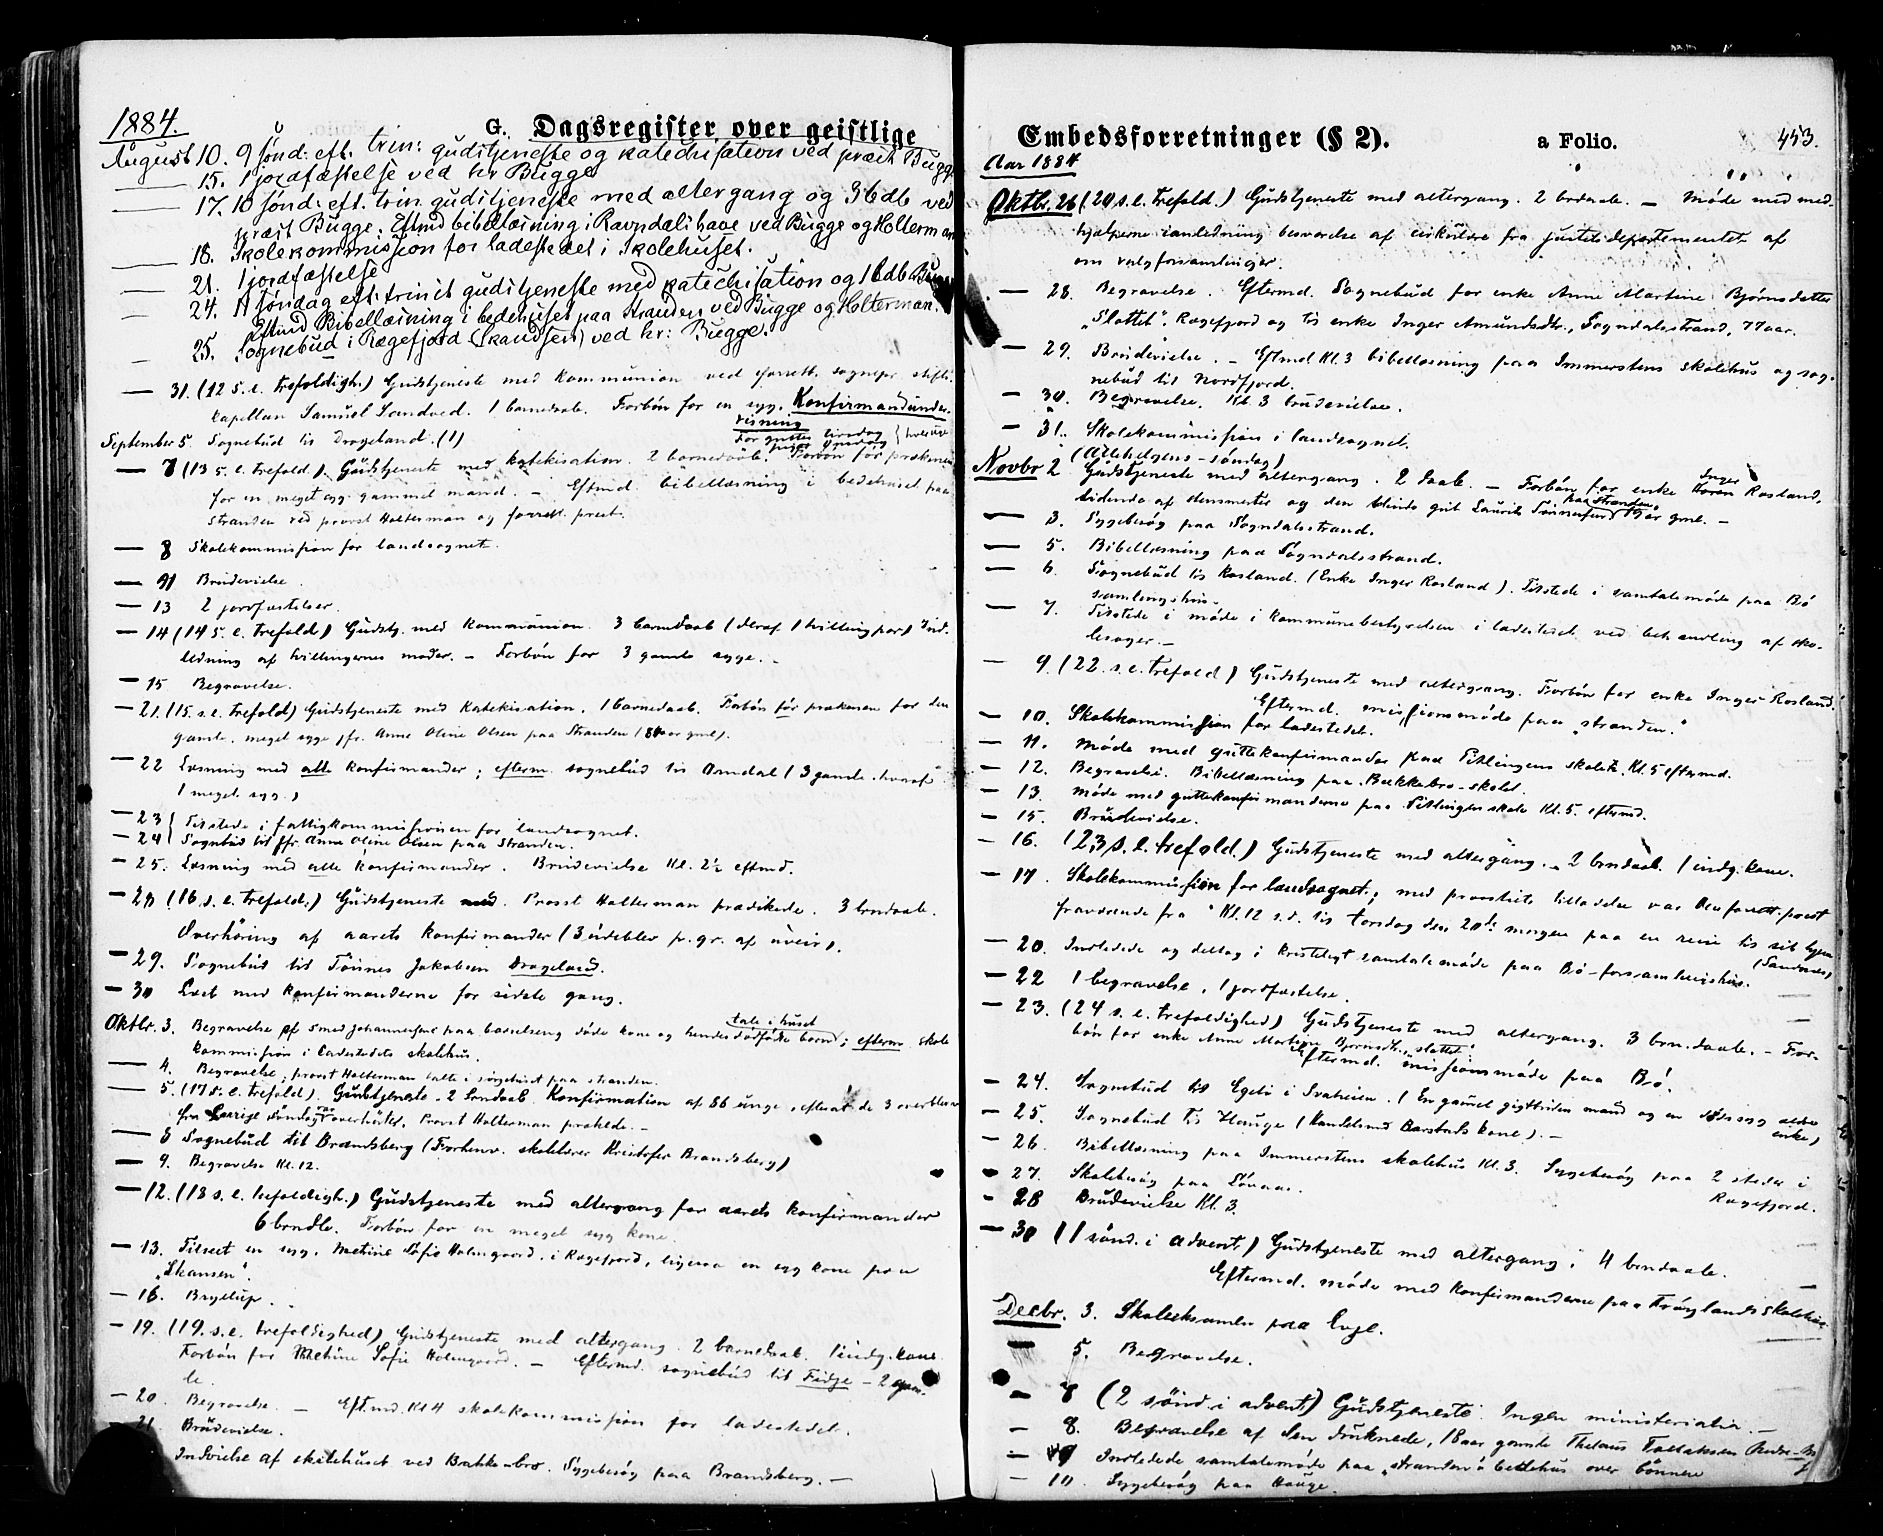 1884.
G. Dagsregister over geistlige
August 10. 9 sønd: eft. trin: gudstjeneste og katechisation ved præst Bugge
— 15. 1 jordfæstelse ved hr Bugge
— 17. 10 sønd: eft. trin. gudstjeneste med altergang og 3 bdb ved
præst Bugge. Eftmd bibellæsning i Ravndals have ved Bugge og Holterman
— 18. Skolekommission for ladestedet i Skolehuset.
— 21. 1 jordfæstelse
— 24. 11 søndag eft. trinit gudstjeneste med katechisation og 1 bdb Bugge
Eftmd Bibellæsning i bedehuset paa Stranden ved Bugge og Holterman.
— 25. Sognebud i Rægefjord (Skandsen) ved hr: Bugge.
— 31. (12 s. e. trefoldigh.) Gudstjeneste med kommunion ved forrett. sognepr. stifts-
kapellan Samuel Sandved. 1 barnedaab. Forbøn for en syg. Konfirmandunder-
visning
for gutter tirsdag
piger onsdag
September 5. Sognebud til Drageland. (1)
— 7 (13 s. e. trefold.) Gudstjeneste med katekisation. 2 barnedaab. Forbøn før prækenen
for en meget syg gammel mand. — Eftmd. bibellæsning i bedehuset paa
Stranden ved provst Holterman og forrett. præst.
— 8 Skolekommission for landsognet.
— 11 Brudevielse.
— 13 2 jordfæstelser.
— 14 (14 s. e. trefold) Gudstj. med kommunion. 3 barndaab (deraf 1 tvillingpar) Ind-
ledning af tvillingernes moder. — Forbøn for 3 gamle syge.
— 15 Begravelse.
— 21. (15. s. e. trefold) Gudstjeneste med katekisation. 1 barnedaab. Forbøn før prækenen for den
gamle, meget syge jfr. Anne Oline Olsen paa Stranden (80 aar gml).
— 22 Læsning med alle konfirmander; efterm. sognebud til Amdal (3 gamle, hvoraf
1 meget syg.)
— 23 Tilstede i fattigkommissionen for landsognet.
— 24 Sognebud til jfr. Anne Oline Olsen paa Stranden.
— 25. Læsning med alle konfirmander. Brudevielse Kl. 2½ eftmd.
— 28 (16. s. e. trefold.) Gudstjeneste. Provst Holterman prædikede. 3 brndaab.
Overhøring af aarets konfirmander (3 udeblev p. gr. af uveir).
— 29. Sognebud til Tønnes Jakobsen Drageland.
— 30 Læst med konfirmanderne for sidste gang.
Oktbr. 3. Begravelse af smed Johannesens paa barselseng døde kone og hendes dødfødte barn; efterm. skole
tale i huset
kommission i ladestedets skolehus.
— 4. Begravelse; provst Holterman talte i sørgehuset paa stranden.
— 5. (17 s. e. trefold). Gudstjeneste. 2 brndaab. Konfirmation af 86 unge, efterat de 3 overblevne
fra forrige søndag var overhørte. Provst Holterman prækede. —
— 8 Sognebud til Brandsberg (Forhenv. skolelærer Kristofer Brandsberg)
— 9. Begravelse Kl. 12.
— 12. (18 s. e. trefoldigh.) Gudstjeneste med altergang for aarets konfirmander
6 brndb. Forbøn for en meget syg kone.
— 13. Tilseet en syg, Metine Sofie Holmgaard, i Rægefjord, ligesaa en syg kone paa
„Skansen“.
— 16. Bryllup.
— 19. (19. s. e. trefoldighed) Gudstjeneste med altergang. 2 barnedaab. 1 indg. kone
Forbøn for Metine Sofie Holmgaard. — Eftermd. sognebud til Fidje — 2 gam-
le.
— 20. Begravelse. — Eft.md. Kl 4 skolekommission for ladestedet.
— 21. Brudevielse.
Indvielse af skolehuset ved Bakke-bro. Sygebesøg paa Brandsberg. —
Embedsforretninger (§ 2).
a Folio.
453.
Aar 1884
Oktbr. 26 (20 s. e. trefold.) Gudstjeneste med altergang. 2 brdaab. — Møde med med-
hjælperne i anledning besvarelse af cirkulære fra justitsdepartementet af
om valgforsamlinger.
— 28. Begravelse. Eftermd. Sognebud for enke Anne Martine Bjørnsdatter
„Slottet“. Rægefjord og til enke Inger Amundsdtr., Sogndalsstrand, 77 aar.
— 29. Brudevielse. — Eftmd Kl. 3 bibellæsning paa Immerstens skolehus og sog-
nebud til Nordfjord.
— 30. Begravelse. Kl. 3 brudevielse.
— 31. Skolekommission i landsognet.
(Allehelgens-søndag)
Novbr 2. Gudstjeneste med altergang. 2 daab. — Forbøn for enke Inger Rosland,
lidende af alensmerter og den blinde gut Laurits Tønnesen paa stranden 13 aar gml. —
— 3. Sygebesøg paa Sogndalsstrand.
— 5. Bibellæsning paa Sogndalsstrand.
— 6. Sognebud til Rosland. (Enke Inger Rosland). Tilstede i samtalemøde paa Bø
samlingshus.
— 7. Tilstede i møde i kommunebestyrelsen i ladestedet ved behandling af sko-
lesager. —
— 9. (22. s. e. trefold) Gudstjeneste med altergang. Forbøn for enke Inger Rosland.
Eftermd. missionsmøde paa „stranden.“
— 10. Skolekommission for ladestedet.
— 11. Møde med guttekonfirmander paa Titlingens skoleh. Kl. 5 eftermd.
— 12. Begravelse. Bibellæsning paa Bakkebro-skoleh.
— 13. Møde med guttekonfirmanderne paa Titlingens skole Kl. 5. eftermd.
— 15. Brudevielse.
— 16. (23 s. e. trefold.) Gudstjeneste med altergang. 2 brndaab. 1 indg. kone.
— 17. Skolekommission for landsognet; med provstiets tilladelse var den forrett. præst
fraværende fra Kl. 12 s. d. til torsdag den 20de morgen paa en reise til sit hjem
(Sandnes)
— 20. Indledede og deltog i kristeligt samtalemøde paa Bø-forsamlingshus.
— 22 1 begravelse, 1 jordfæstelse.
— 23. (24 s. e. trefoldighed) Gudstjeneste med altergang. 3 brn.daab. — For-
bøn for enke Anne Martine Bjørnsdtr. „slottet“.
Eftermd. missionsmøde paa Bø.
— 24. Sognebud til Egeli i Svaheien. (En gammel gigtliden mand og en syg ældre
enke)
— 25. Sognebud til Hauge (Handelsmd Barstads kone). —
— 26. Bibellæsning paa Immerstens skolehus Kl. 3. Sygebesøg paa 2 steder i
Rægefjord.
— 27. Skolebesøg paa Lønnes.
— 28 Brudevielse Kl. 3.
— 30 (1 sønd. i advent) Gudstjeneste med altergang; 4 brndaab.
Eftermd. møde med konfirmanderne paa Frøylands skolehus
Decbr. 3. Skoleeksamen paa Evje.
— 5. Begravelse.
— 7 (2 sønd. i advent) Gudstjeneste. Ingen ministerialia. —
— 8. Begravelse af den druknede, 18 aar gamle
— 9 Indledede samtalemøde paa „stranden“s bedehus over bønnen
— 10 Sygebesøg paa Hauge.